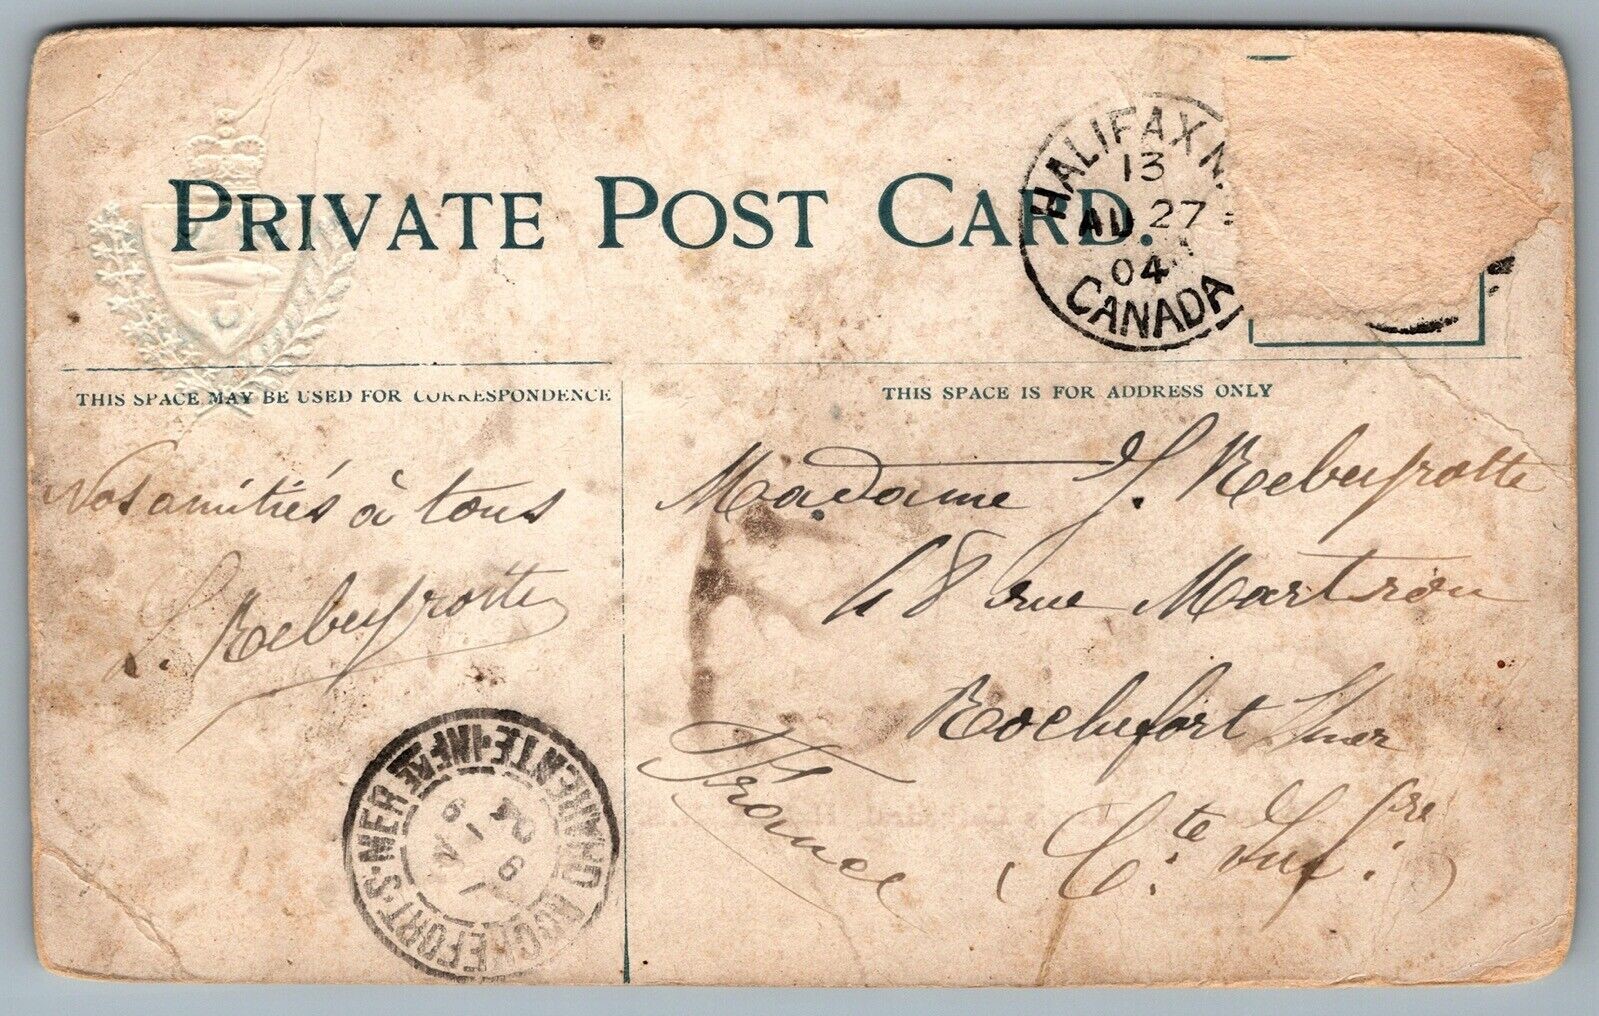 PRIVATE POST CARD.
HALIFAX N.
13
AU 27
04
CANADA
THIS SPACE MAY BE USED FOR CORRESPONDENCE
THIS SPACE IS FOR ADDRESS ONLY
Nos amitiés à tous
L. Rebeyrotte
Madame J. Rebeyrotte
48 rue Martrou
Rochefort s/mer
(Cte Infre)
France
ROCHEFORT-S-MER CHARENTE-INFRE